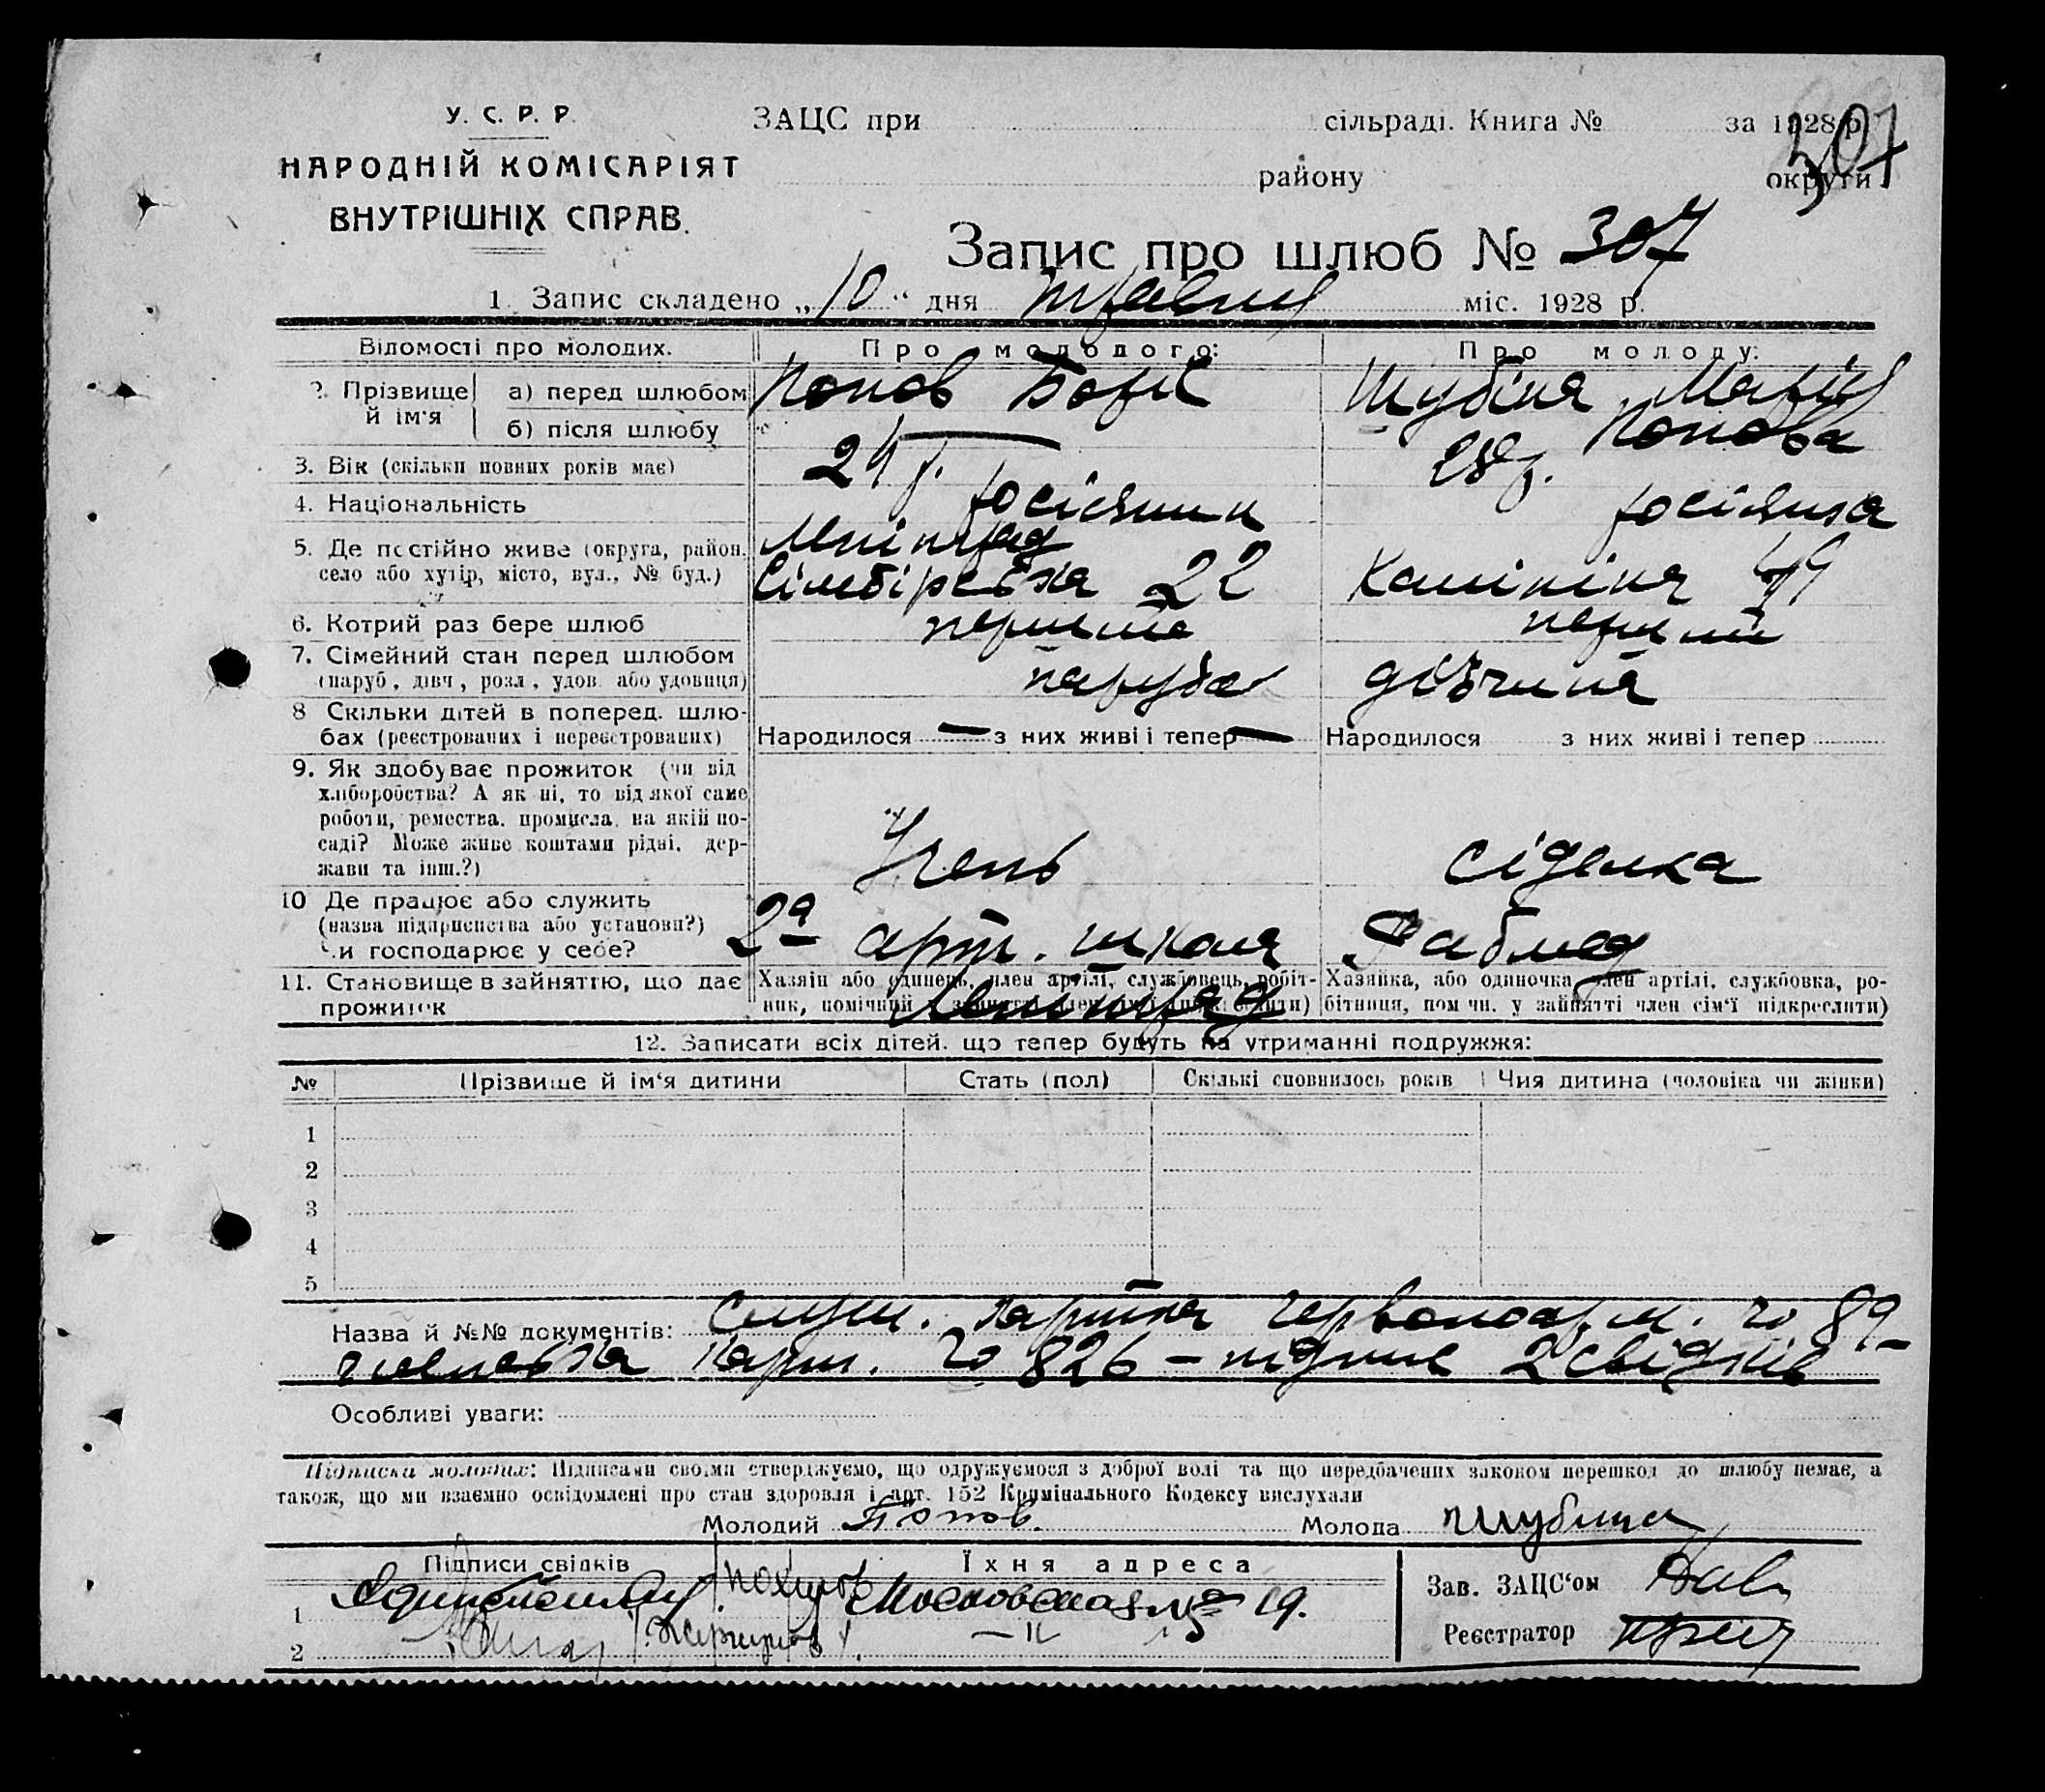 У. С. Р. Р.
НАРОДНІЙ КОМІСАРІЯТ
ВНУТРІШНІХ СПРАВ.
ЗАЦС при сільраді. Книга № за 1928 р.
району округи
307
Запис про шлюб № 307
1. Запис складено „10“ дня травня міс. 1928 р.
Відомості про молодих. Про молодого: Про молоду:
2. Прізвище й ім'я а) перед шлюбом Попов Борис Шубіна Марія
б) після шлюбу Попова
3. Вік (скільки повних років має) 24 р. 28 р.
4. Національність росіянин росіянка
5. Де постійно живе (округа, район,
село або хутір, місто, вул., № буд.) Сімбірська 22 Калініна 49
6. Котрий раз бере шлюб перший перший
7. Сімейний стан перед шлюбом
(паруб., дівч., розл., удов. або удовиця) парубок дівчина
8 Скільки дітей в поперед. шлю-
бах (реєстрованих і нереєстрованих) Народилося — з них живі і тепер — Народилося з них живі і тепер
9. Як здобуває прожиток (чи від
хліборобства? А як ні, то від якої саме
роботи, ремества, промисла, на якій по-
саді? Може живе коштами рідні, дер-
жави та інш.?) Учень сіделка
10 Де працює або служить
(назва підприємства або установи?)
Чи господарює у себе? 2а арт. школа Ленінград
11. Становище в зайняттю, що дає
прожиток
Хазяїн або одинець, член артілі, службовець, робіт-
ник, помічний
Хазяйка, або одиночка член артілі, службовка, ро-
бітниця, пом чн. у зайнятті член сім'ї підкреслити)
12. Записати всіх дітей, що тепер будуть на утриманні подружжя:
№ Прізвище й ім'я дитини Стать (пол) Скількі сповнилось років Чия дитина (чоловіка чи жінки)
1
2
3
4
5
Назва й №№ документів: Служ. картка червоноарм. № 89 –
членська карт. № 826 – підпис 2 свідків
Особливі уваги:
Підписка молодих: Підписами своїми стверджуємо, що одружуємося з доброї волі та що передбачених законом перешкод до шлюбу немає, а
також, що ми взаємно освідомлені про стан здоровля і арт. 152 Кримінального Кодексу вислухали
Молодий Попов. Молода Шубина
Підписи свідків Їхня адреса
1 Московская № 19.
2 — " —
Зав. ЗАЦС‘ом
Реєстратор